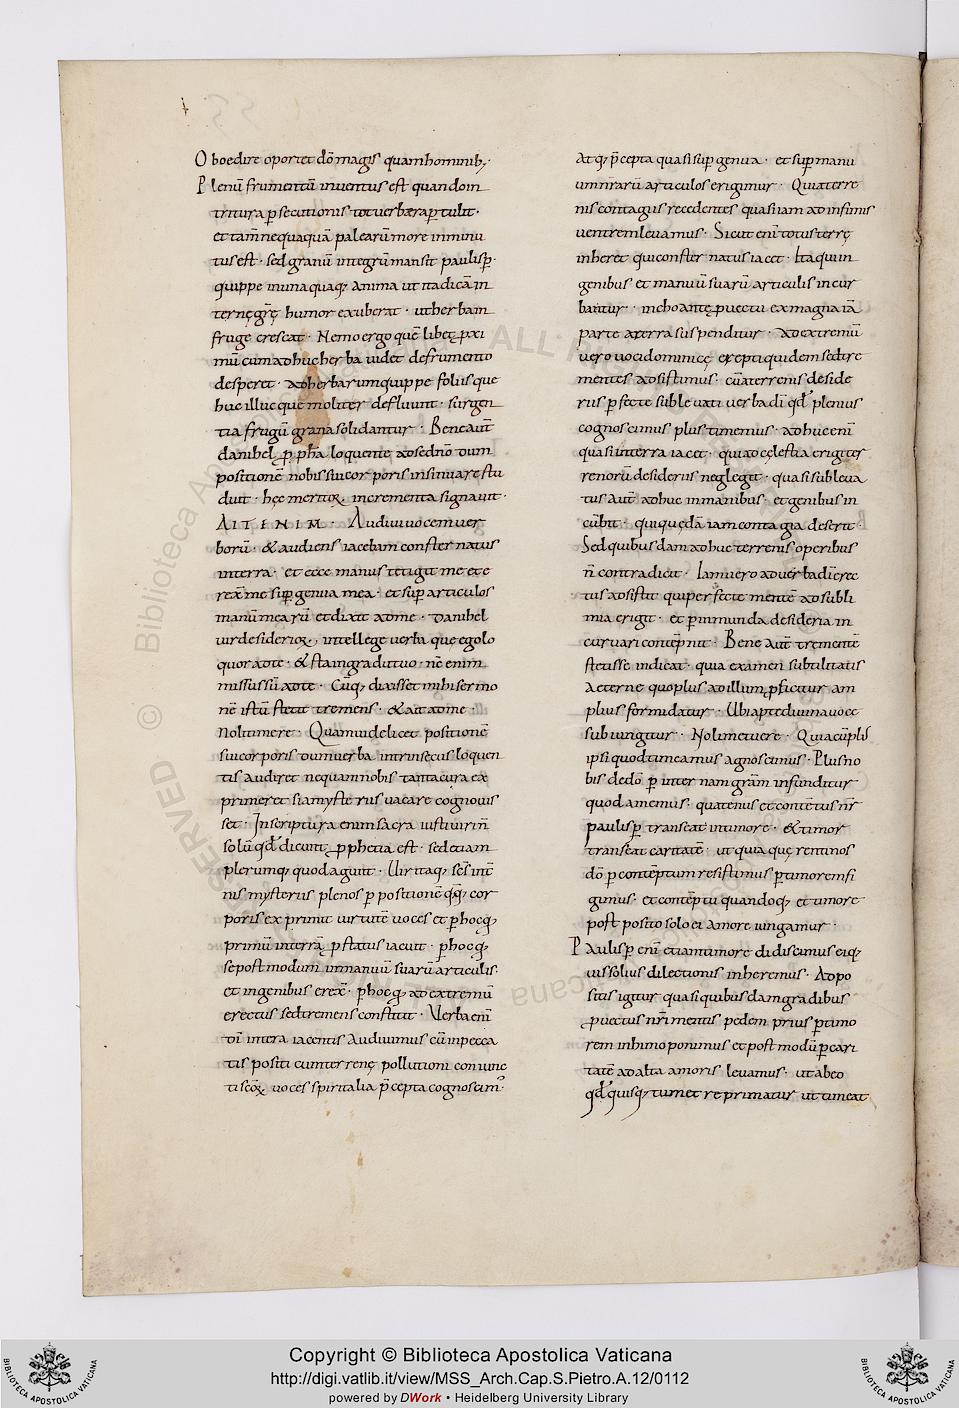 Oboedire oportet dō magis quam hominib;·
Plenū frumentū inventus est quando in
tritura p̱secutionis tot verbera p̱tulit·
et tam̄ nequaquā palearū more inminu
tus est· sed granū integrū mansit paulisp̱·
quippe in unaquaq; anima ut ita dicā in
ternę grę̄ humor exuberat· ut herbam
fruge crescat· Nemo ergo quē libet p̱xi
mū cum adhuc herba videt de frumento
desperet· ad herbarum quippe foliis que
huc illucque moliter defluunt· surgen
tia frugū grana solidantur· Bene aut̄
danihel p̱ ꝓpha loquente ad sed n̄ o dum
positionē nobis sui corporis insinuare stu
duit· hęc meritoꝝ incrementa signavit·
AIT ENIM· Audivi vocem ver
borū· & audiens iacebam consternatus
in terra· et ecce manus tetigit me et e
rex̄ me sup̱ genua mea· et sup̱ articulos
manū mearū et dixit ad me· danihel
vir desiderioꝝ, intellege verba que ego lo
quor ad te· & sta in gradu tuo· n̄c enim
missus sū ad te· Cūq; dixisset mihi sermo
nē istū steti tremens· & ait ad me·
Noli timere· Quam videlicet positionē
sui corporis dum verba intrinsecus loquen
tis audiret nequam nobis tanta cura ex
primeret si a mysterius vacare cognovis
set· In scriptura enim sacra iusti viri n̄
solū qđ dicunt, ꝓphetia est· sed etiam
plerumq; quod agunt· Vir itaq; sc̄s int̄
nis mysteriis plenos p̱ positionē q̄q; cor
poris exprimit virtutē voces et p̱ hoc q;
primū in terrā p̱stratus iacuit· p̱ hoc q;
se postmodum in manuū suarū articulis
et in genibus erex̄· p̱ hoc q; ad extremū
erectus sed tremens constitit· Verba enī
dī in tera iacentis audivimus cū in pecca
tis positi cum terrenę pollutioni coniunc
ti sc̄oꝝ voces spiritalia p̄cepta cognoscim'·
Atq; p̄cepta quasi sup̱ genua· et sup̱ manu
um nrarū articulos erigimur· Quia terre
nis contagiis recedentes quasi iam ad infimis
ventrem levamus· Sicut enī totus terrę
inheret qui consternatus iacet· Ita qui in
genibus et manuū suarū articulis incur
batur· inchoante ꝓvectu ex magna iā
parte a terra suspenditur· Ad extremū
vero voci dominicę erepti quidem sed tre
mentes adsistimus· cū a terrenis deside
riis p̱fecte sublevati verba dī qđ plenius
cognoscimus plus timemus· adhuc enī
quasi in terra iacet· qui ad cęlestia erigi ter
renorū desideriis neglegit· quasi subleva
tus aut̄ adhuc in manibus· et genibus in
cūbit· qui quędā iam contagia deserit·
Sed quibusdam adhuc terrenis operibus
n̄ contradicit· Iam vero ad verba dī erec
tus adsistit qui perfecte mentē ad subli
mia erigit· et p̱ inmunda desideria in
curvari contēpnit· Bene aut̄ trementē
stetisse indicat· quia examen subtilitatis
aeterne quo plus ad illum ꝓficitur am
plius formidatur· Ubi apte divina voce
subiungitur· Noli metuere· Quia cū plis
ipsi quod timeamus agnoscimus· Plus no
bis de dō p̱ internam gram̄ infunditur
quod amemus· quatenus et contētus nr̄
paulisp̱ transeat in timore· & timor
transeat caritatē· ut quia quę rentinos
dō p̱ contēptum resistimus p̱ timorem fi
gimus· et contēptu quandoq; et timore
postposito solo ei amore iungamur·
Paulisp̱ enī etiam timore didiscimus eiq;
vis solius dilectionis inheremus· Adpo
sitis igitur quasi quibusdam gradibus
ꝓvectus nr̄i mentis pedem prius p̱ timo
rem in himo ponimus et post modū p̱ cari
tatē ad alta amoris levamus· ut ab eo
qđ quisq; tumet reprimatur ut timeat
Copyright © Biblioteca Apostolica Vaticana
http://digi.vatlib.it/view/MSS_Arch.Cap.S.Pietro.A.12/0112
powered by DWork • Heidelberg University Library